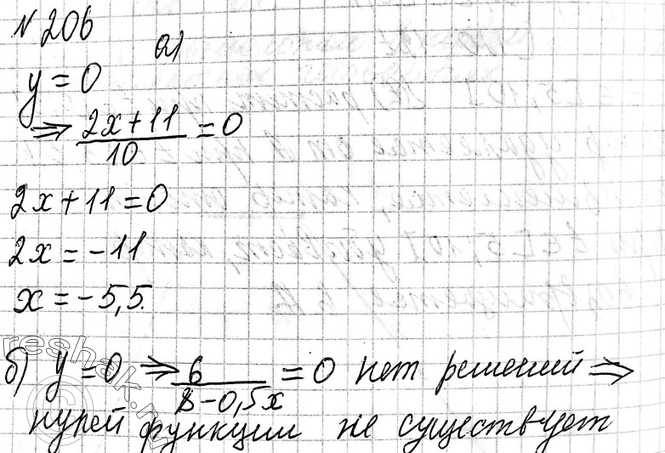 № 206
а)
y = 0
⇒ (2x + 11)/10 = 0
2x + 11 = 0
2x = −11
x = −5,5.
б) y = 0 ⇒ 6/(8 − 0,5x) = 0 нет решений ⇒
нулей функции не существует